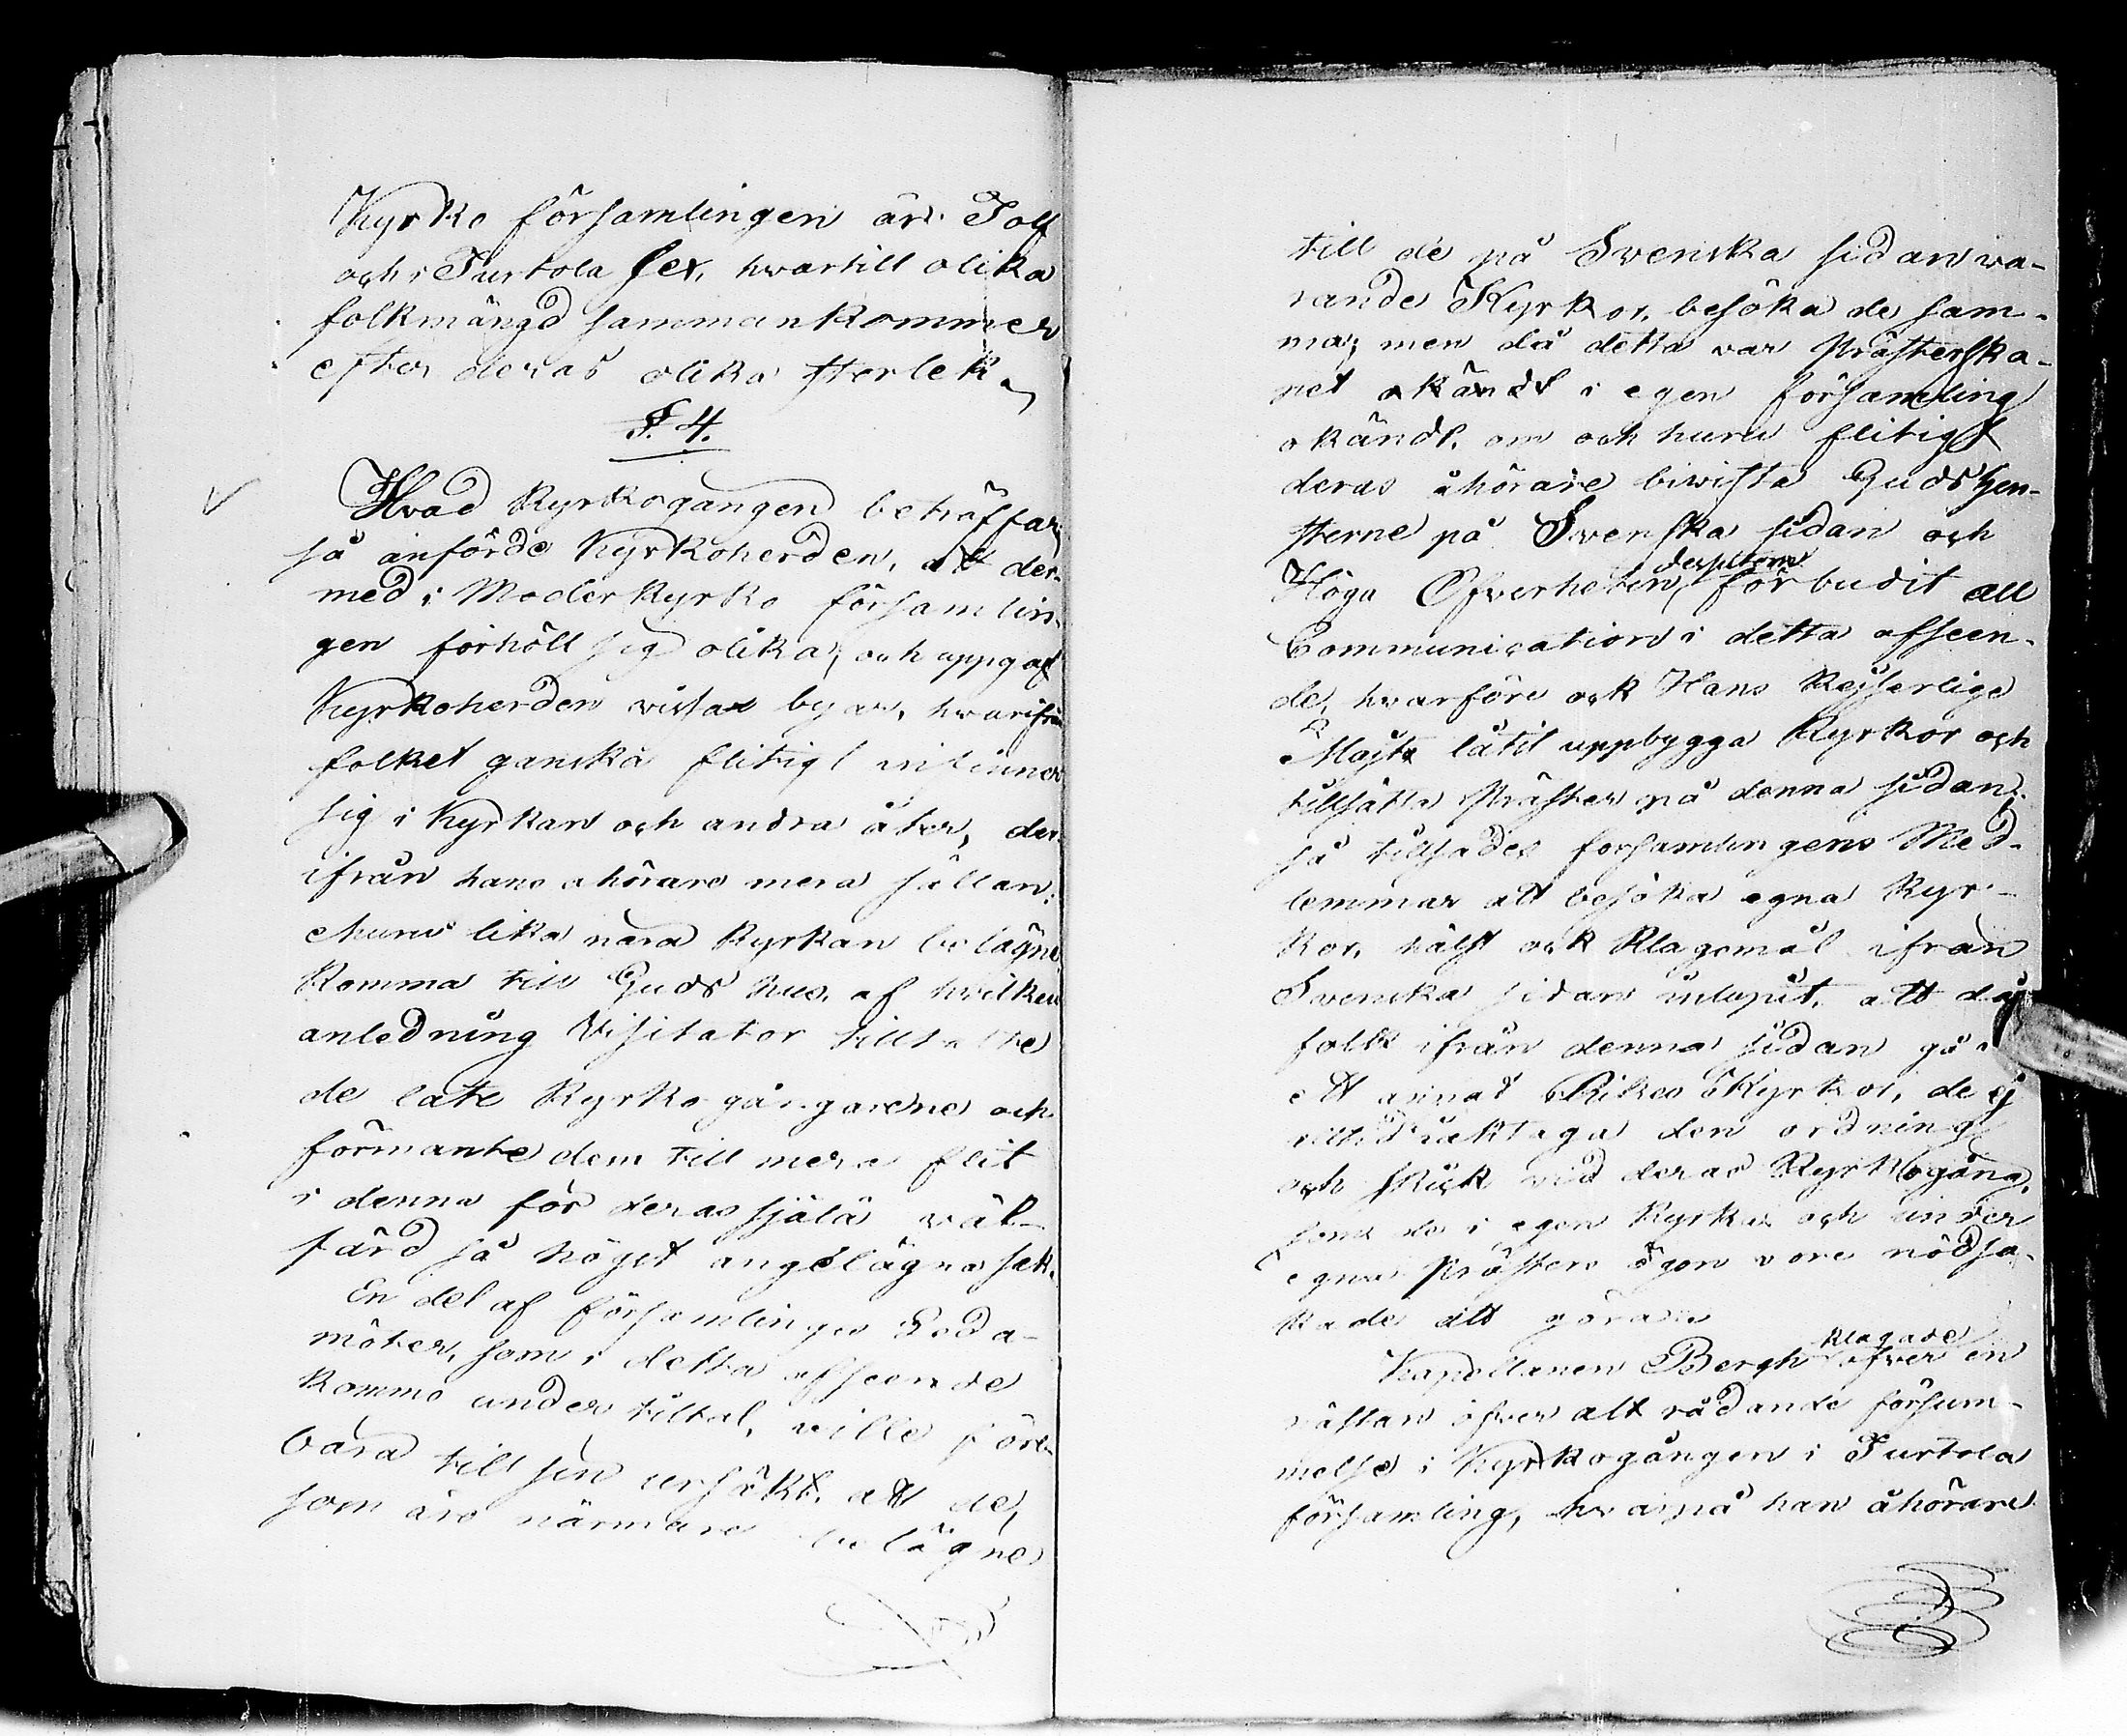 Kyrko församlingen är Tolf
och i Turtola Sex, hvartill olika
folkmängd sammankommer
efter deras olika storlek.
§. 4.
Hvad Kyrkogången beträffar,
så anförde Kyrkoherden, att der-
med i Moderkyrko församlin-
gen förhöll sig olika, och uppgaf
Kyrkoherden vissa byar, hvarifrån
folket ganska flitigt infinner
sig i Kyrkan och andra åter, der-
ifrån hans åhörare mera sällan,
ehuru lika nära Kyrkan belägne
komma till Guds hus, af hvilken
anledning Visitator tilltalte
de late Kyrkogångarene och
förmante dem till mera flit
i denna för deras själa väl-
färd så högst angelägna sak.
En del af församlingens Leda-
möter, som i detta afseende
kommo under tilltal, ville före-
bära till sin ursäkt, att de,
som äro närmare belägne
till de på Svenska sidan va-
rande Kyrkor, besöka de sam-
ma; men då detta var Prästerska-
pet okändt i egen församling
okändt, om och huru flitigt
deras åhörare bivista Gudstjen-
sterne på Svenska sidan och
dessutom
Höga Öfverheten, förbudit all
Communication i detta afseen-
de, hvarföre ock Hans Kejserlige
Majt: låtit uppbygga Kyrkor och
tillsätta Präster på denna sidan,
så tillsades församlingens Med-
lemmar att besöka egna Kyr-
kor, hälst ock Klagomål ifrån
Svenska sidan inlupit, att då
folk ifrån denna sidan gå i
ett annat Rikes Kyrkor, de ej
alltid iakttaga den ordning
och skick vid deras Kyrkogång,
som de i egen Kyrka och under
egna Prästers ögon vore nödsa-
kade att göra.
klagade
Kapellanen Bergh öfver en
nästan öfver alt rådande försum-
melse i Kyrkogången i Turtola
församling, hvarpå han åhörare